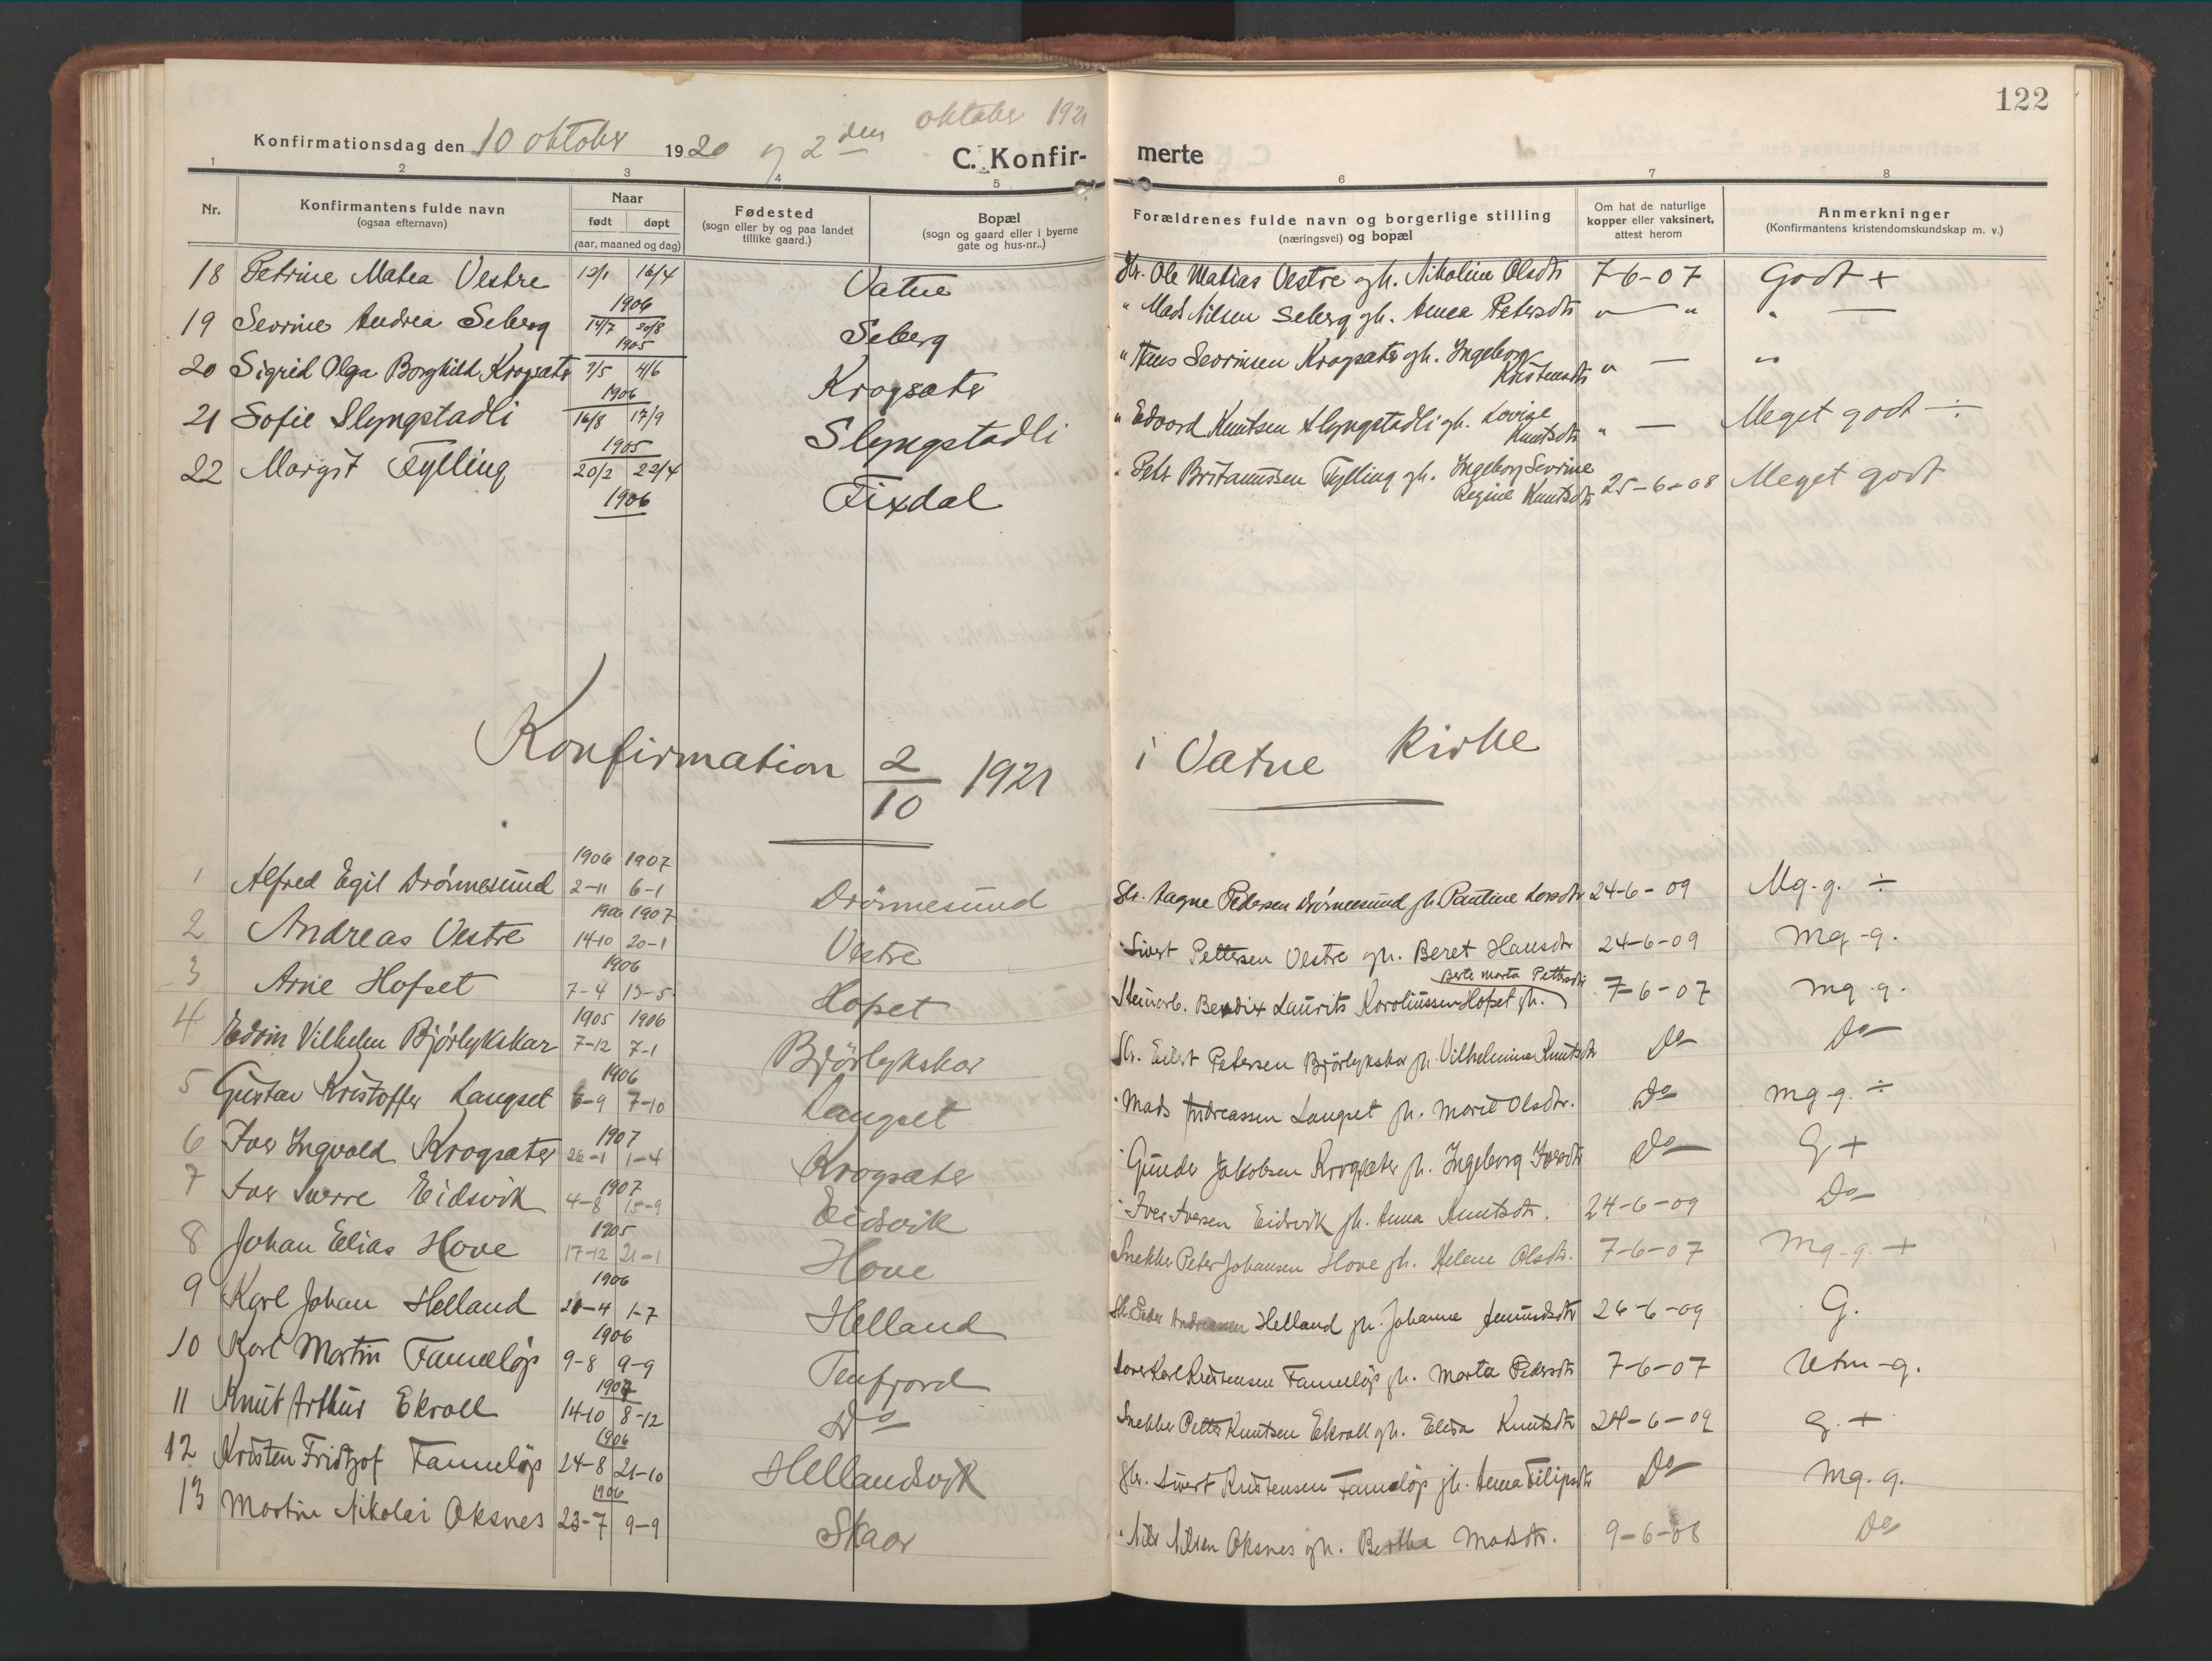 122
Konfirmationsdag den 10 oktober 1920 og 2 den oktober 1921
C. Konfirmerte
1 2 3 4 5 6 7 8
Nr.
Konfirmantens fulde navn
(ogsaa efternavn)
Naar
født døpt
(aar, maaned og dag)
Fødested
(sogn eller by og paa landet
tillike gaard.)
Bopæl
(sogn og gaard eller i byerne
gate og hus-nr..)
Forældrenes fulde navn og borgerlige stilling
(næringsvei) og bopæl
Om hat de naturlige
kopper eller vaksinert,
attest herom
Anmerkninger
(Konfirmantens kristendomskundskap m. v.)
18 Petrine Matea Vestre 12/1 16/4 1906 Vatne Gbr. Ole Matias Vestre gh. Nikoline Olsdtr 7-6-07 Godt +
19 Sevrine Andrea Seberg 14/7 20/8 1905 Seberg " Mads Nilsen Seberg gh. Anna Petersdtr " — " " —
20 Sigrid Olga Borghild Krogsæter 7/5 4/6 1906 Krogsæter " Hans Sevrinsen Krogsæter gh. Ingeborg Kristensdtr " — "
21 Sofie Slyngstadli 16/8 17/9 1905 Slyngstadli " Edvard Knutsen Slyngstadli gh. Lovise Knutsdtr " — Meget godt ÷
22 Margit Fylling 20/2 22/4 1906 Fixdal " Peter Britanussen Fylling gh. Ingeborg Sevrine Regine Knutsdtr 25-6-08 Meget godt
Konfirmation 2/10 1921 i Vatne Kirke
1 Alfred Egil Drönnesund 1906 1907 2-11 6-1 Drönnesund Gbr. Magne Pedersen Drönnesund gh. Pauline Larsdtr 24-6-09 Mg-g. ÷
2 Andreas Vestre 1906 1907 14-10 20-1 Vestre " Sivert Pettersen Vestre gh. Beret Hansdtr 24-6-09 mg-g.
3 Arne Hofset 1906 7-4 13-5 Hofset Stenarb. Bendix Laurits Karolinussen Hofset gh. Berte Marta Pettersdtr 7-6-07 mg-g.
4 Edvin Vilhelm Bjørlykskar 1905 1906 7-12 7-1 Bjørlykskar Gbr. Eilert Petersen Bjørlykskar gh. Vilhelmina Knutsdtr Do Do
5 Gustav Kristoffer Langset 1906 6-9 7-10 Langset " Mads Andreassen Langset gh. Marie Olsdtr. Do mg-g. ÷
6 Iver Ingvald Krogsæter 1907 26-1 1-4 Krogsæter " Gunder Jakobsen Krogsæter gh. Ingeborg Iversdtr Do G +
7 Iver Sverre Eidsvik 1907 4-8 15-9 Eidsvik " Iver Iversen Eidsvik gh. Anna Knutsdtr. 24-6-09 Do
8 Johan Elias Hove 1905 17-12 21-1 Hove Snekker Peter Johansen Hove gh. Helene Olsdtr. 7-6-07 Mg-g. +
9 Karl Johan Helland 1906 20-4 1-7 Helland Gbr. Peder Andreassen Helland gh. Johanne Amundsdtr 26-6-09 G.
10 Karl Martin Fanneløp 1906 9-8 9-9 Tenfjord Karl Kristensen Fanneløp gh. Marta Pedersdtr 7-6-07 Utm-g.
11 Knut Arthur Ekroll 1907 14-10 8-12 Do Snekker Petter Knutsen Ekroll gh. Elisa Knutsdtr 24-6-09 g. +
12 Kristen Fridtjof Fanneløp 1906 24-8 21-10 Hellandsvik Gbr. Sivert Kristensen Fanneløp gh. Anna Filipsdtr Do Mg. g.
13 Martin Nikolai Oksnes 1906 23-7 9-9 Skaar " Nils Nilsen Oksnes gh. Bertha Madsdtr. 9-6-08 Do